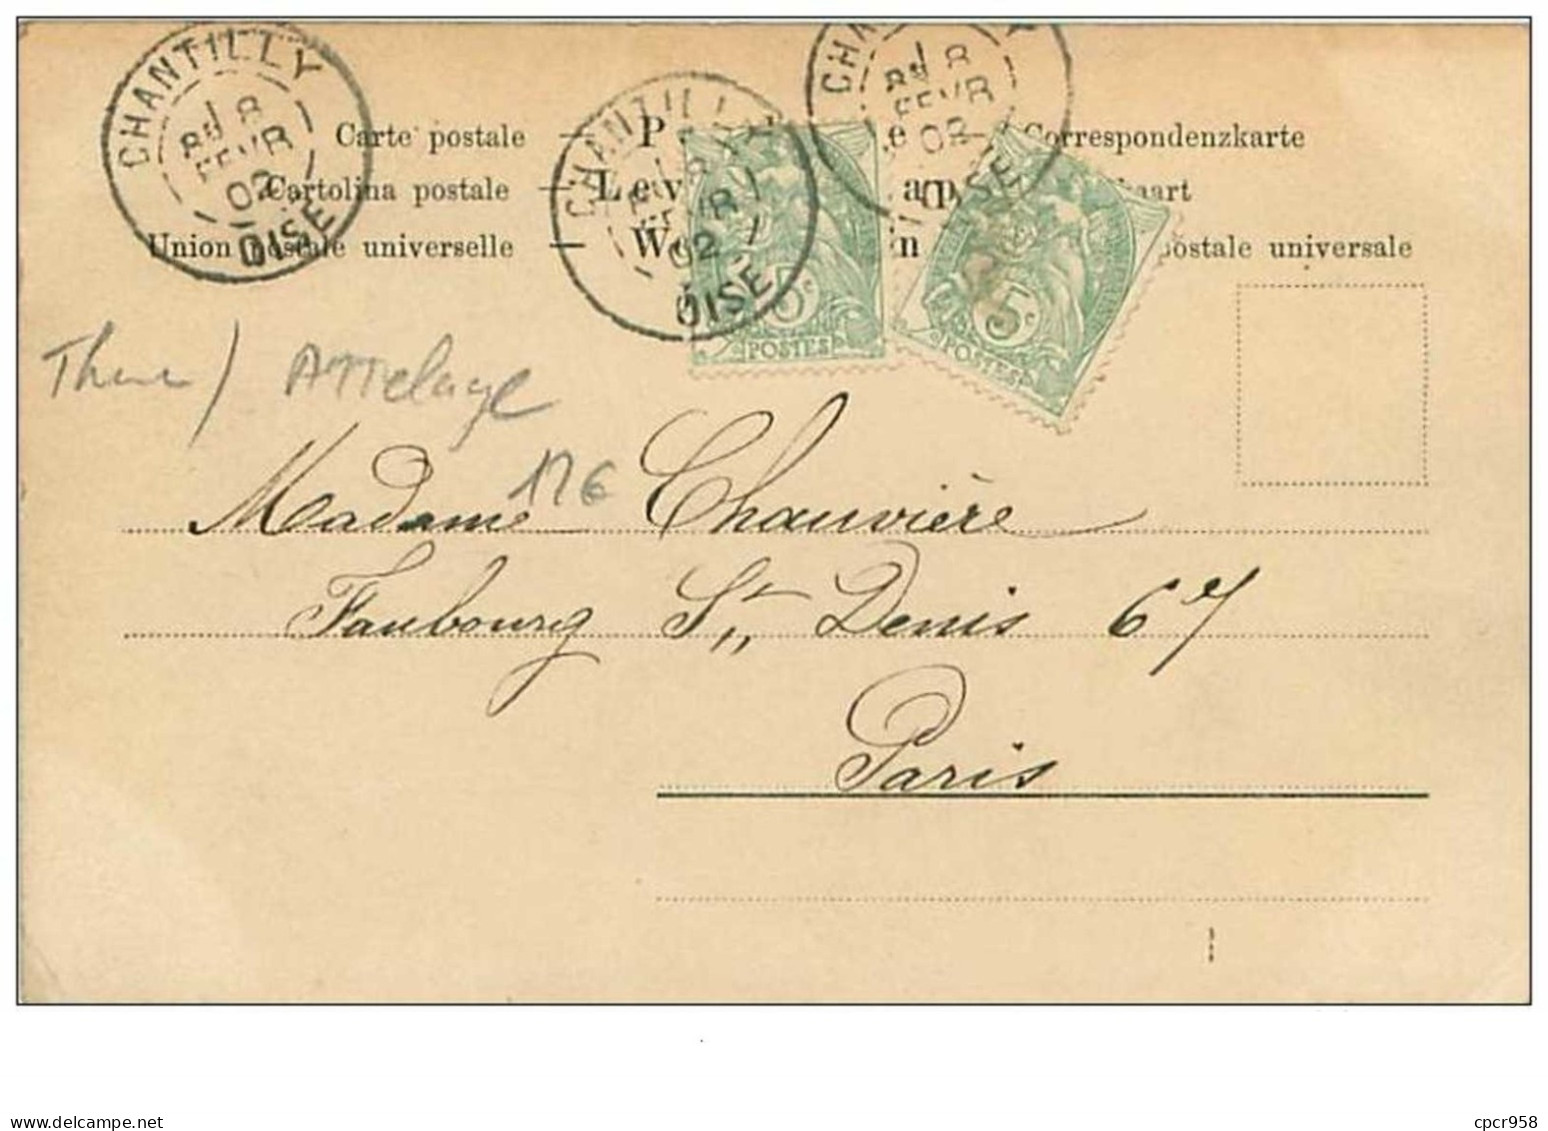 CHANTILLY
8
FEVR
02
OISE
CHANTILLY
FEVR
02
OISE
8
FEVR
02
OISE
Carte postale
Correspondenzkarte
Cartolina postale
Union postale universelle
postale universale
5c
POSTES
5c
POSTES
Attelage
12€
Madame Chauvière
Faubourg St Denis 67
Paris
www.delcampe.net
cpcr958